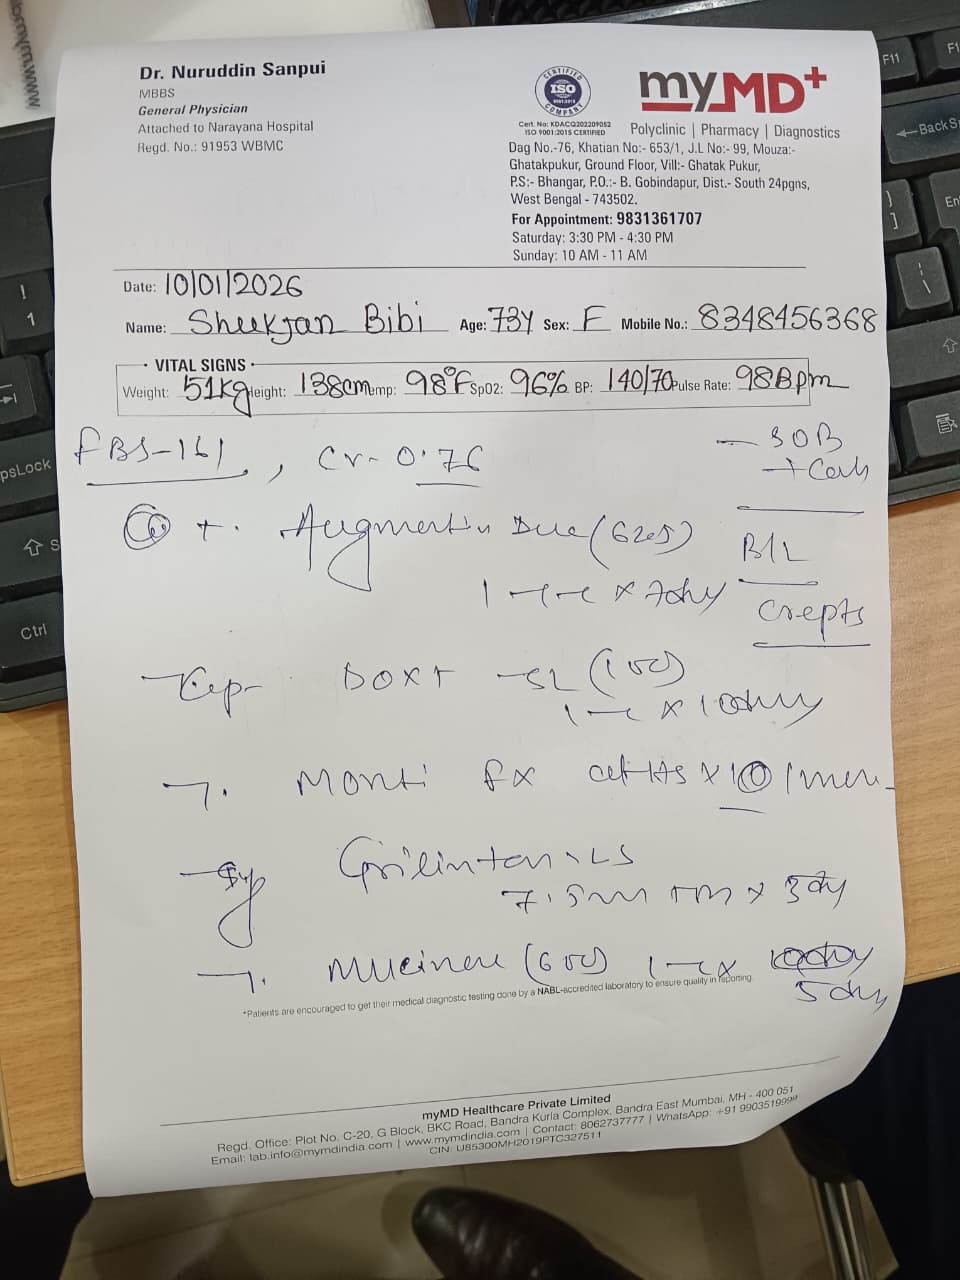 Dr. Nuruddin Sanpui
MBBS
General Physician
Attached to Narayana Hospital
Regd. No.: 91953 WBMC
CERTIFIED
ISO
9001:2015
COMPANY
Cert. No: KDACQ202209052
ISO 9001:2015 CERTIFIED
myMD+
Polyclinic | Pharmacy | Diagnostics
Dag No.-76, Khatian No:- 653/1, J.L No:- 99, Mouza:-
Ghatakpukur, Ground Floor, Vill:- Ghatak Pukur,
P.S:- Bhangar, P.O.:- B. Gobindapur, Dist.- South 24pgns,
West Bengal - 743502.
For Appointment: 9831361707
Saturday: 3:30 PM - 4:30 PM
Sunday: 10 AM - 11 AM
Date: 10/01/2026
Name: Shukjan Bibi Age: 73Y Sex: F Mobile No.: 8348456368
VITAL SIGNS
Weight: 51Kg Height: 138cm Temp: 98°F SpO2: 96% BP: 140/70 Pulse Rate: 98Bpm
FBS-161, Cr- 0.76
- SOB
B/L
crepts
Augmentin Duo (625)
1 x 7day
Cap- DOXT -SL (100)
1 x 10day
T. Monti fx x 10
Syp Grilinctus-LS
7.5ml x 5dy
T. Mucinac (600) 1 x
5day
*Patients are encouraged to get their medical diagnostic testing done by a NABL-accredited laboratory to ensure quality in reporting.
myMD Healthcare Private Limited
Regd. Office: Plot No. C-20, G Block, BKC Road, Bandra Kurla Complex, Bandra East Mumbai, MH - 400 051
Email: lab.info@mymdindia.com | www.mymdindia.com | Contact: 8062737777 | WhatsApp: +91 9903519999
CIN: U85300MH2019PTC327511
F11
BackS
!
1
}
]
|
\
Ctrl
psLock